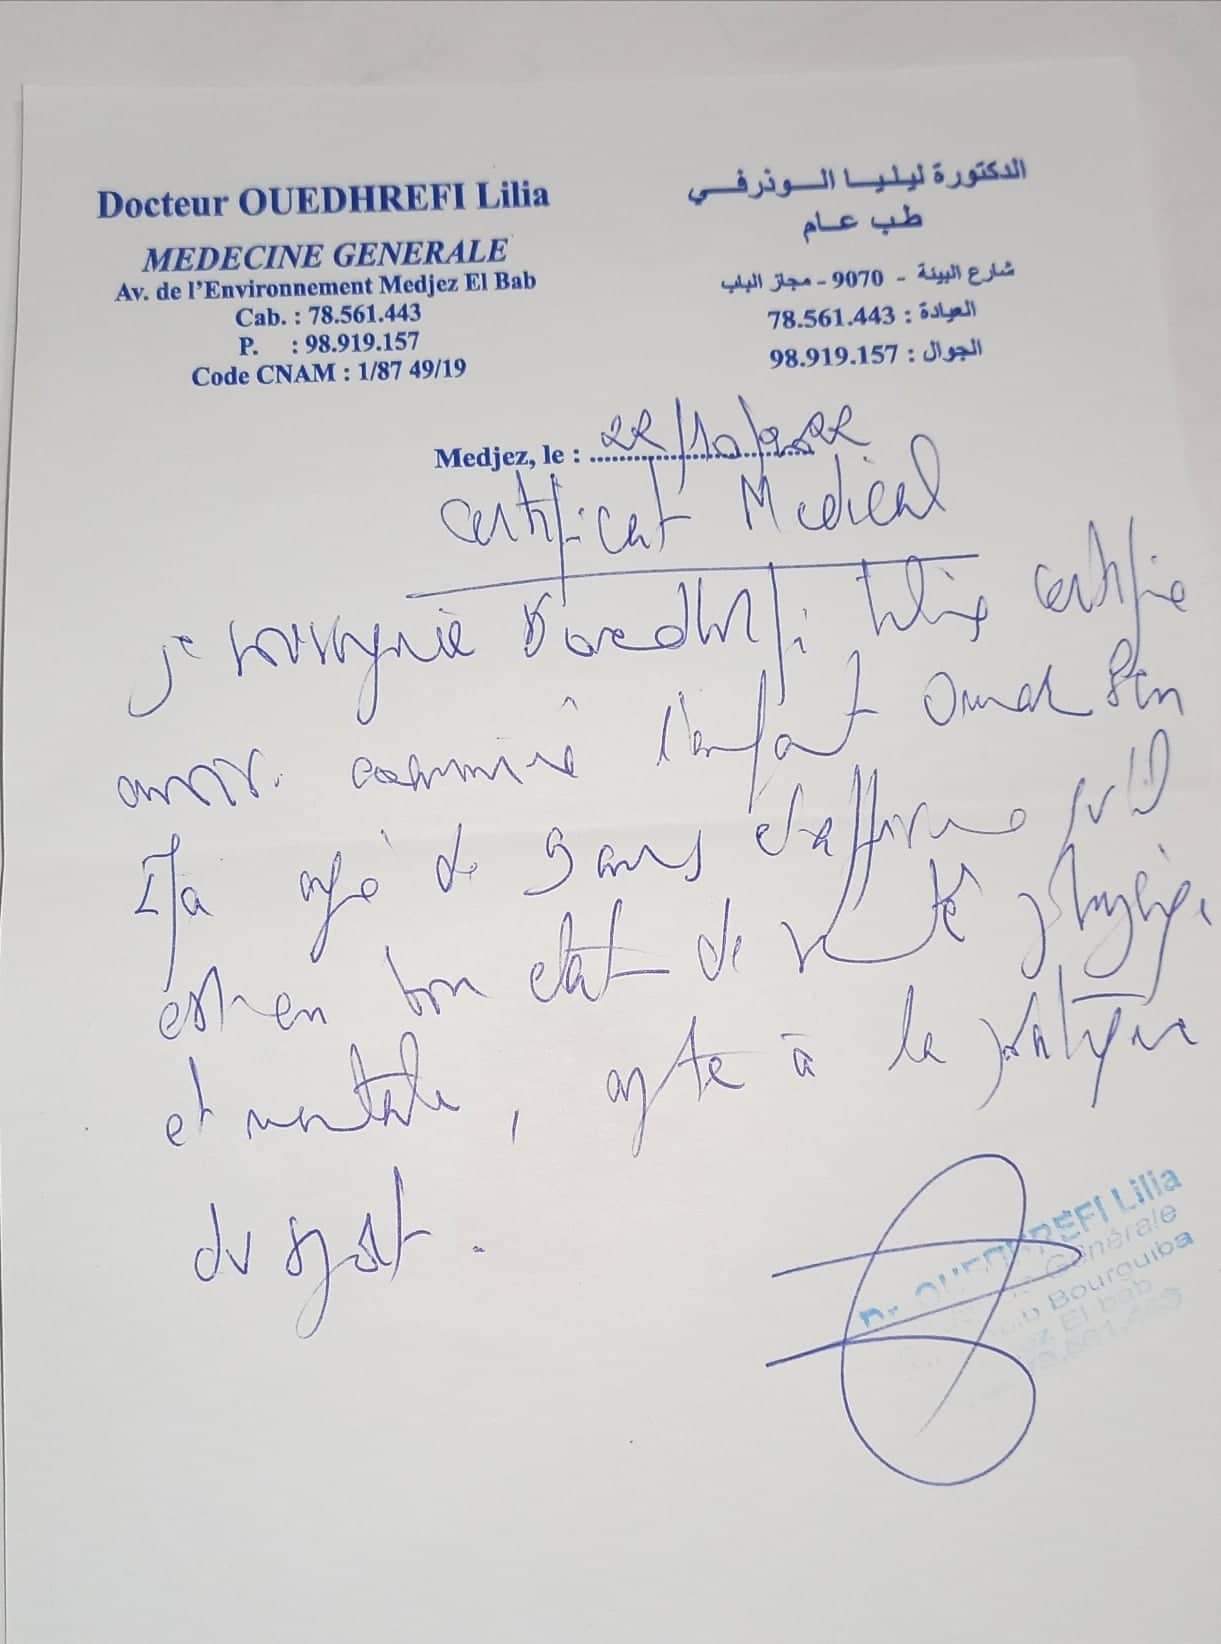 Docteur OUEDHREFI Lilia
MEDECINE GENERALE
Av. de l'Environnement Medjez El Bab
Cab. : 78.561.443
P. : 98.919.157
Code CNAM : 1/87 49/19
الدكتورة ليليا الوذرفي
طب عام
شارع البيئة - 9070 - مجاز الباب
العيادة : 78.561.443
الجوال : 98.919.157
Medjez, le : 22/10/2022
Certificat Medical
je soussignée Dr ouedhrefi Lilia certifie
avoir examiné l'enfant Omar Ben
âgé de 9 ans et affirme qu'il
est en bon etat de santé physique
et mentale, apte à la pratique
du sport.
Dr. OUEDHREFI Lilia
Générale
Bourguiba
El bab